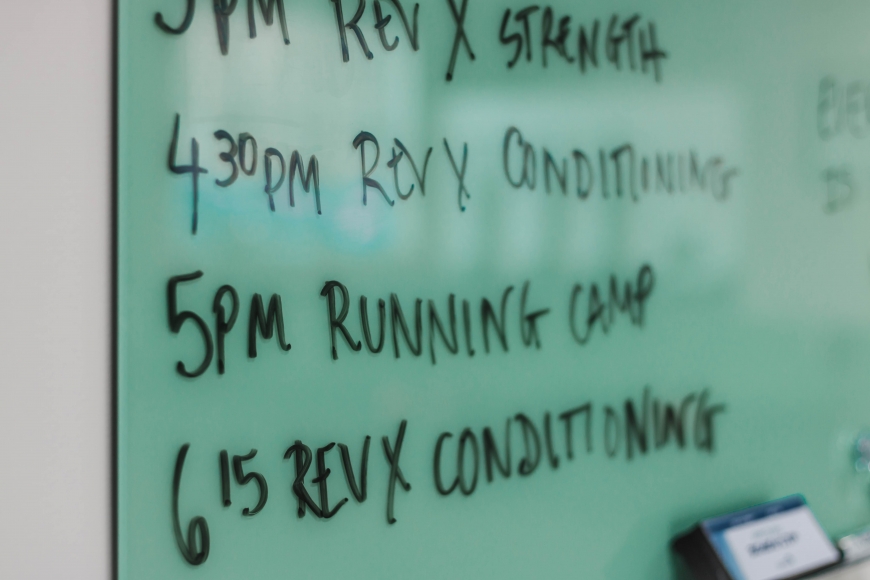 PM REV X STRENGTH
4 30PM REV X CONDITIONING
5PM RUNNING CAMP
6 15 REV X CONDITIONING
IS